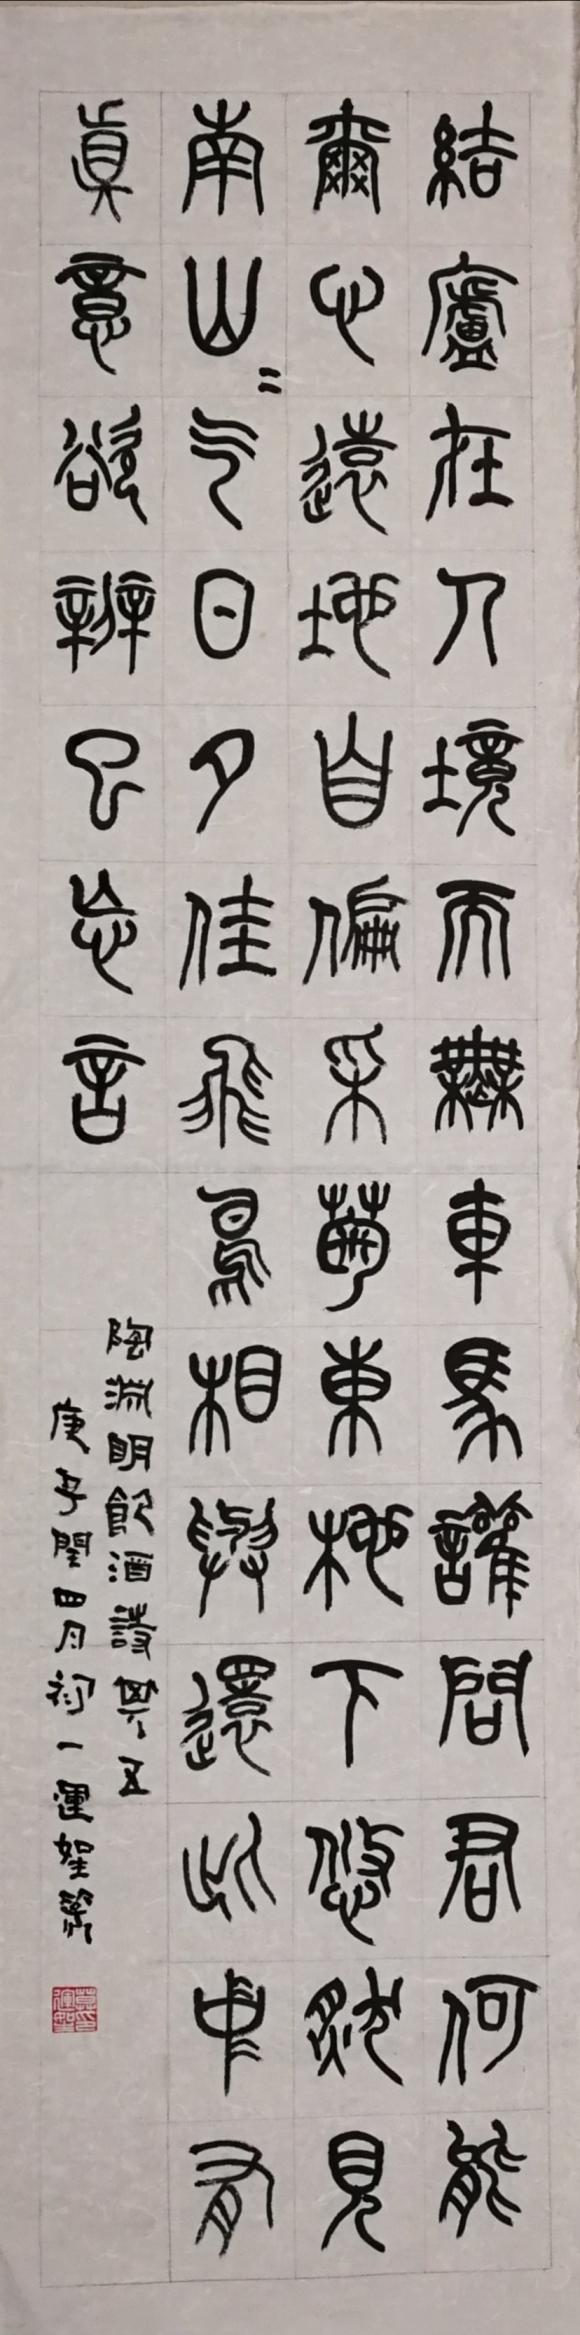 結廬在人境而無車馬讙問君何能
爾心遠地自偏采菊東杝下悠然見
南山〻气日夕佳飛鳥相與還此中有
眞意欲辨已忘言
陶淵明飲酒詩其五
庚子閏四月初一運篆